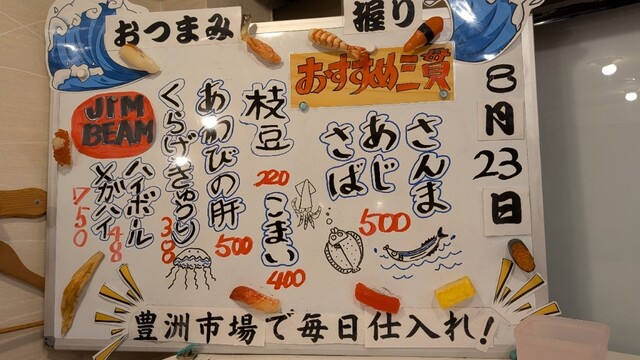 おつまみ
握り
8月23日
おすすめ三貫
さんま
あじ
さば
500
枝豆
220
こまい
400
あわびの肝
500
くらげきゅうり
308
JIM
BEAM
ハイボール
メガハイ
750
豊洲市場で毎日仕入れ!